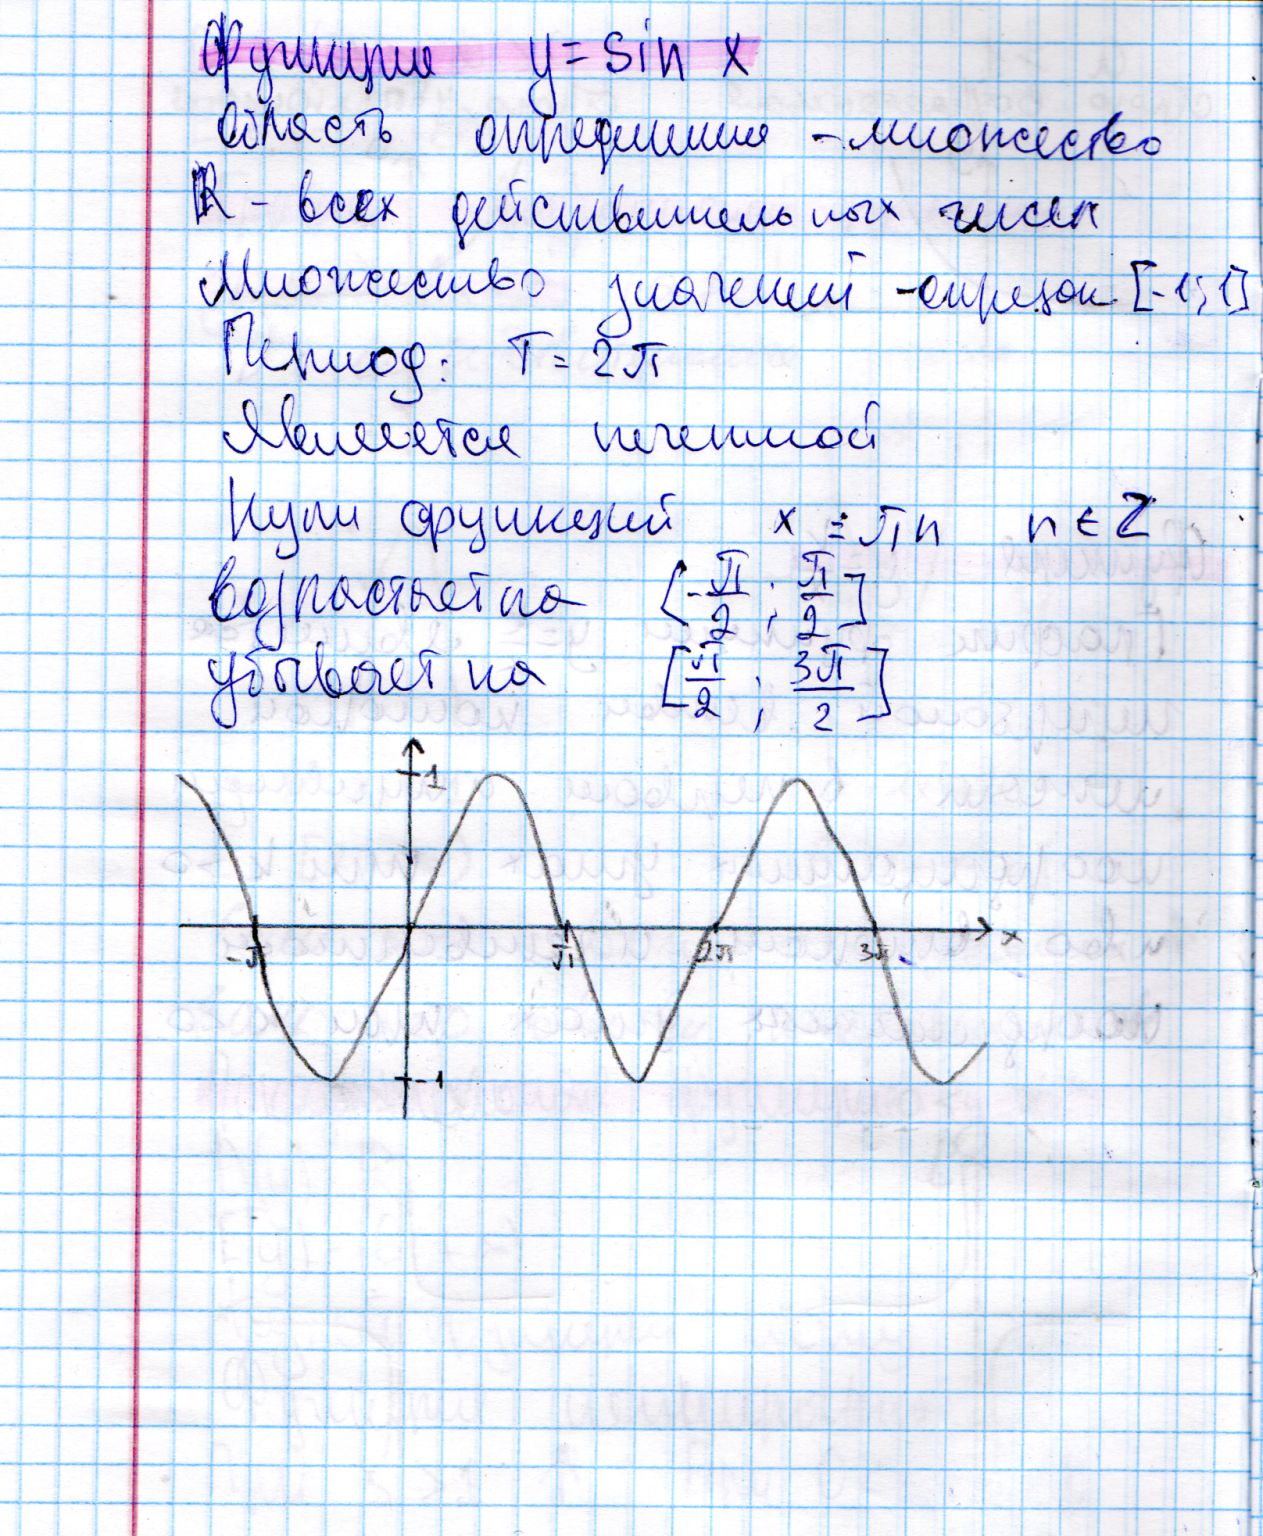 Функция y = sin x
область определения - множество
R - всех действительных чисел
Множество значений - отрезок [-1; 1]
Период: T = 2π
Является нечетной
Нули функций x = πn n ∈ Z
возрастает на [-π/2 ; π/2]
убывает на [π/2 ; 3π/2]
1
-π π 2π 3π x
-1